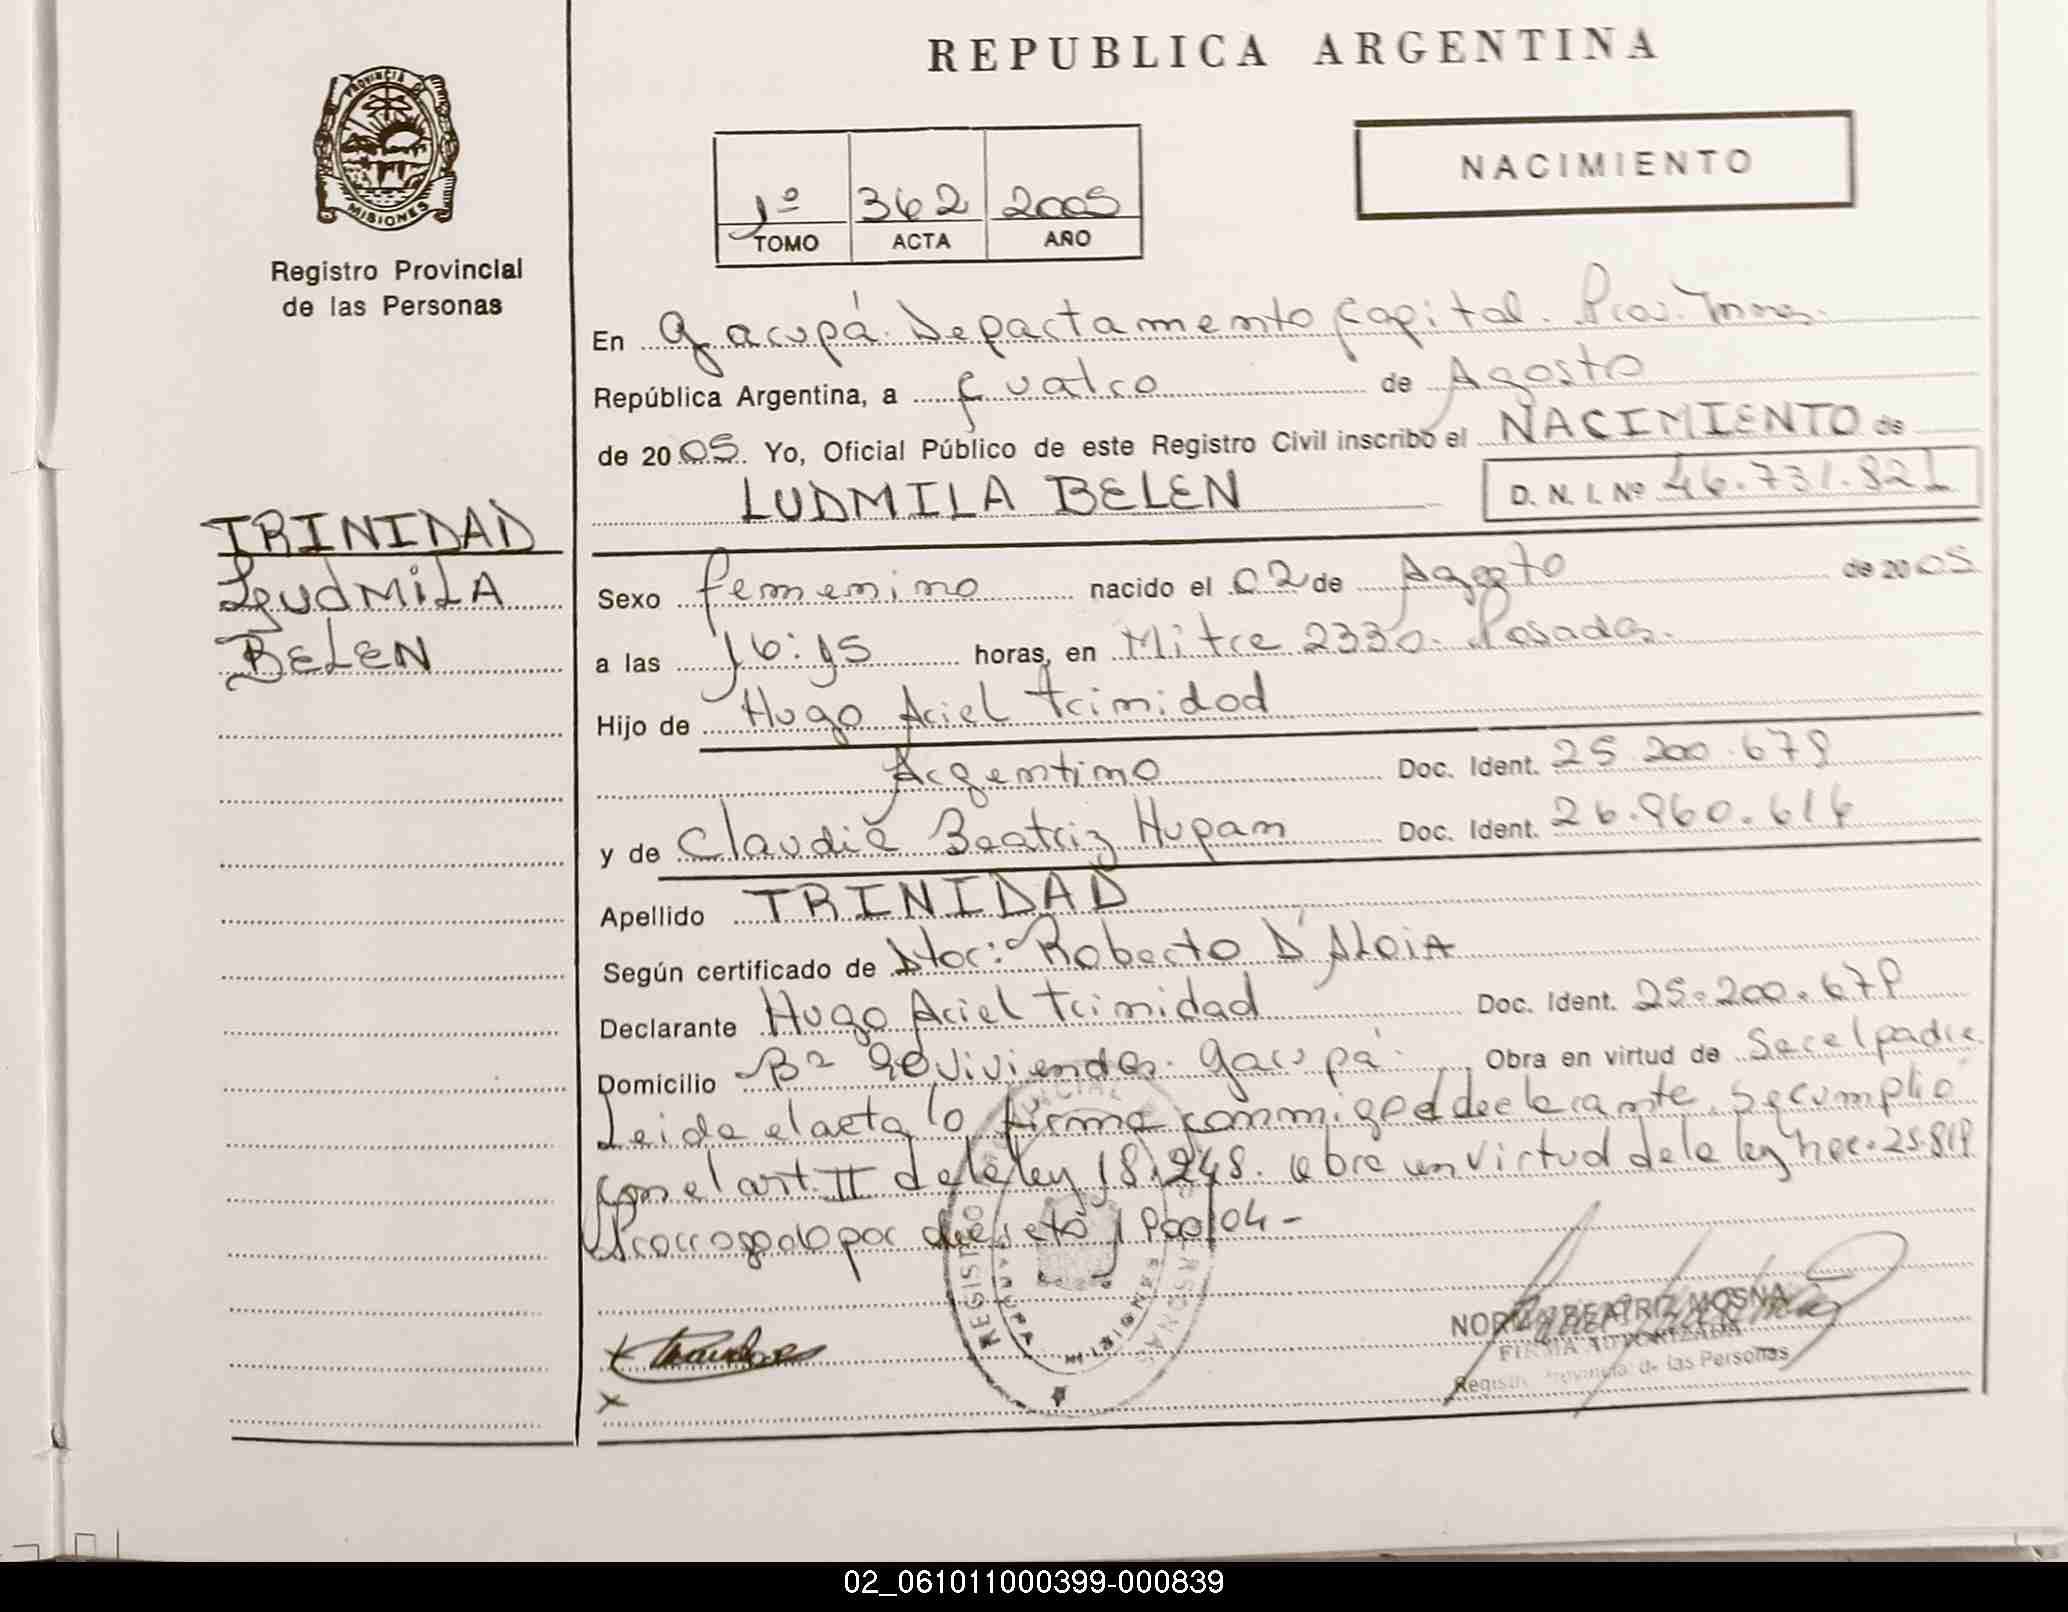 REPUBLICA ARGENTINA
PROVINCIA DE
MISIONES
Registro Provincial
de las Personas
1º 362 2005
TOMO ACTA AÑO
NACIMIENTO
En Garupá. Departamento Capital. Prov. Mnes.
República Argentina, a cuatro de Agosto
de 2005. Yo, Oficial Público de este Registro Civil inscribo el NACIMIENTO de
LUDMILA BELEN D. N. I. Nº 46.731.821
TRINIDAD
LUdMiLA
BELEN
Sexo femenino nacido el 02 de Agosto de 2005
a las 16:15 horas, en Mitre 2330. Posadas.
Hijo de Hugo Ariel Trinidad
Argentino Doc. Ident. 25.200.679
y de Claudia Beatriz Hupan Doc. Ident. 26.960.614
Apellido TRINIDAD
Según certificado de Dtor: Roberto D'ALOiA
Declarante Hugo Ariel Trinidad Doc. Ident. 25.200.679
Domicilio Bº viviendas. Garupá. Obra en virtud de Ser el padre
Leida el acta lo firma conmigo el declarante. Se cumplio
con el art. II de la ley 18.248. obra en virtud de la ley nro. 25.819
Prorrogado por decreto 1900/04-
REGISTRO
NORMA BEATRIZ MOSNA
FIRMA AUTORIZADA
Registro Provincial de las Personas
x
x
02_061011000399-000839